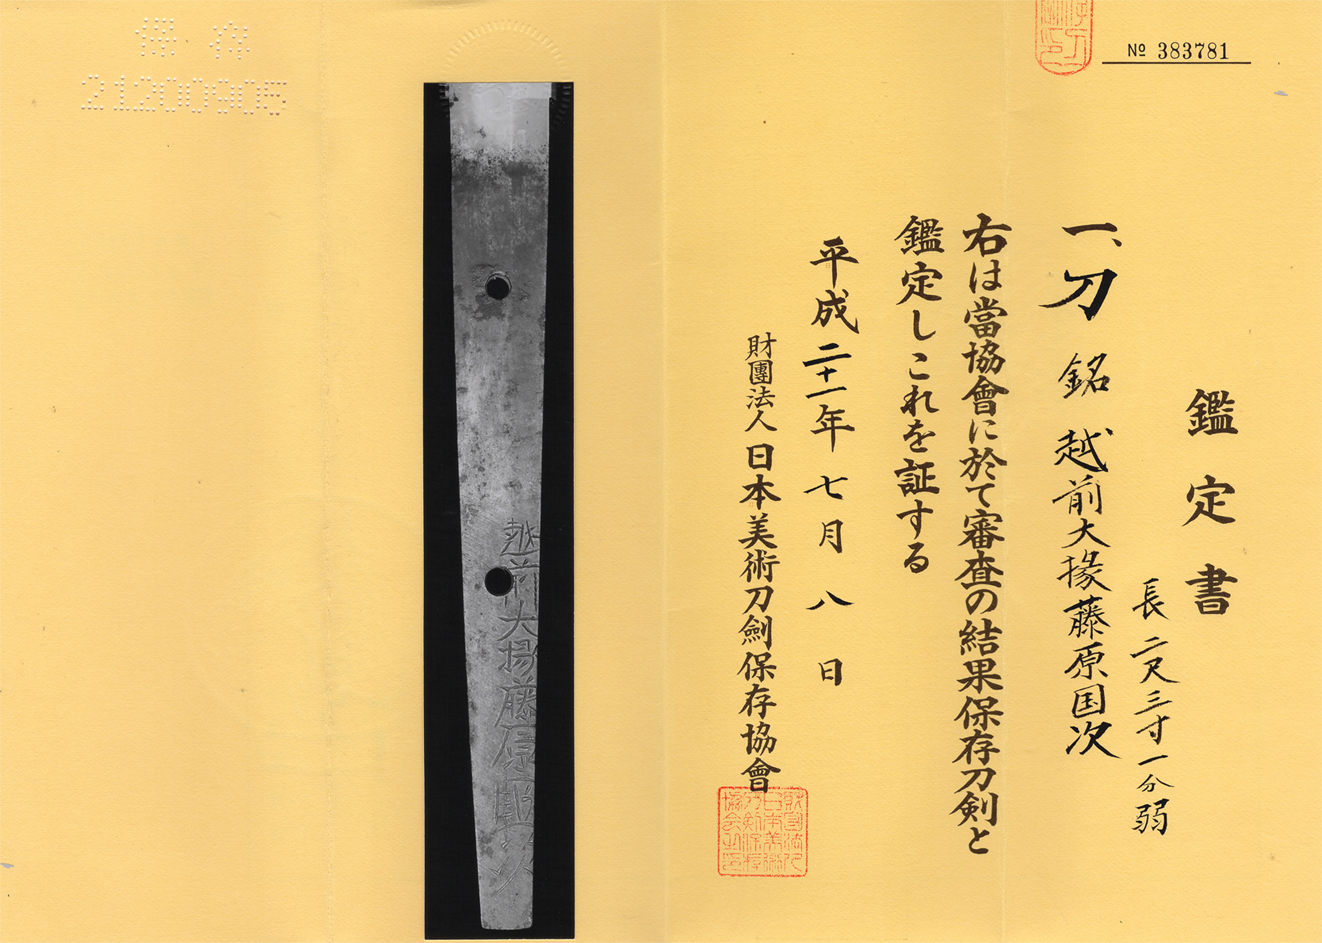 № 383781
鑑定書
長二尺三寸一分弱
一、刀 銘 越前大掾藤原国次
右は當協會に於て審査の結果保存刀剣と
鑑定しこれを証する
平成二十一年七月八日
財團法人日本美術刀劍保存協會
越前大掾藤原國次
保存
21200905